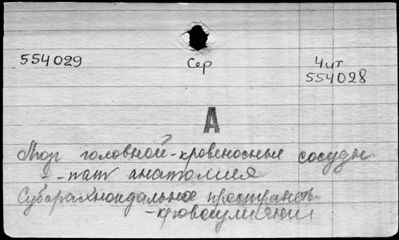 554029 Сер 4ит
554028
А
Мозг головной - кровеносные сосуды
- - пат анатомия
Субарахноидальное пространств
- кровоизлияния